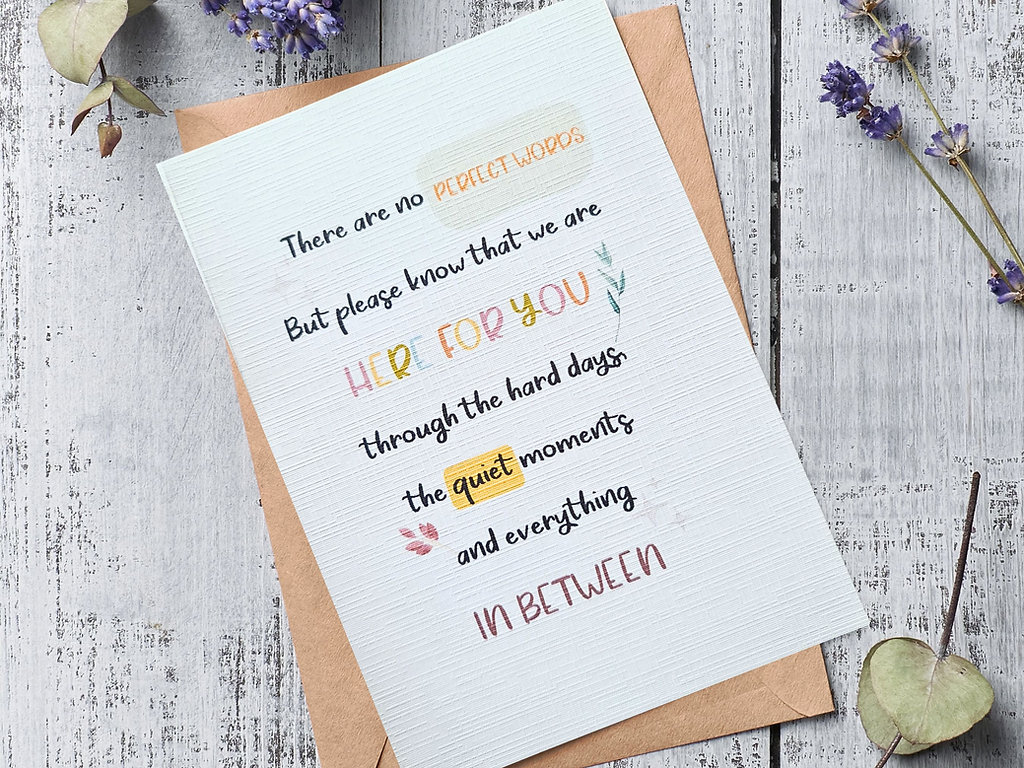 There are no PERFECT WORDS
But please know that we are
HERE FOR YOU
through the hard days,
the quiet moments
and everything
IN BETWEEN